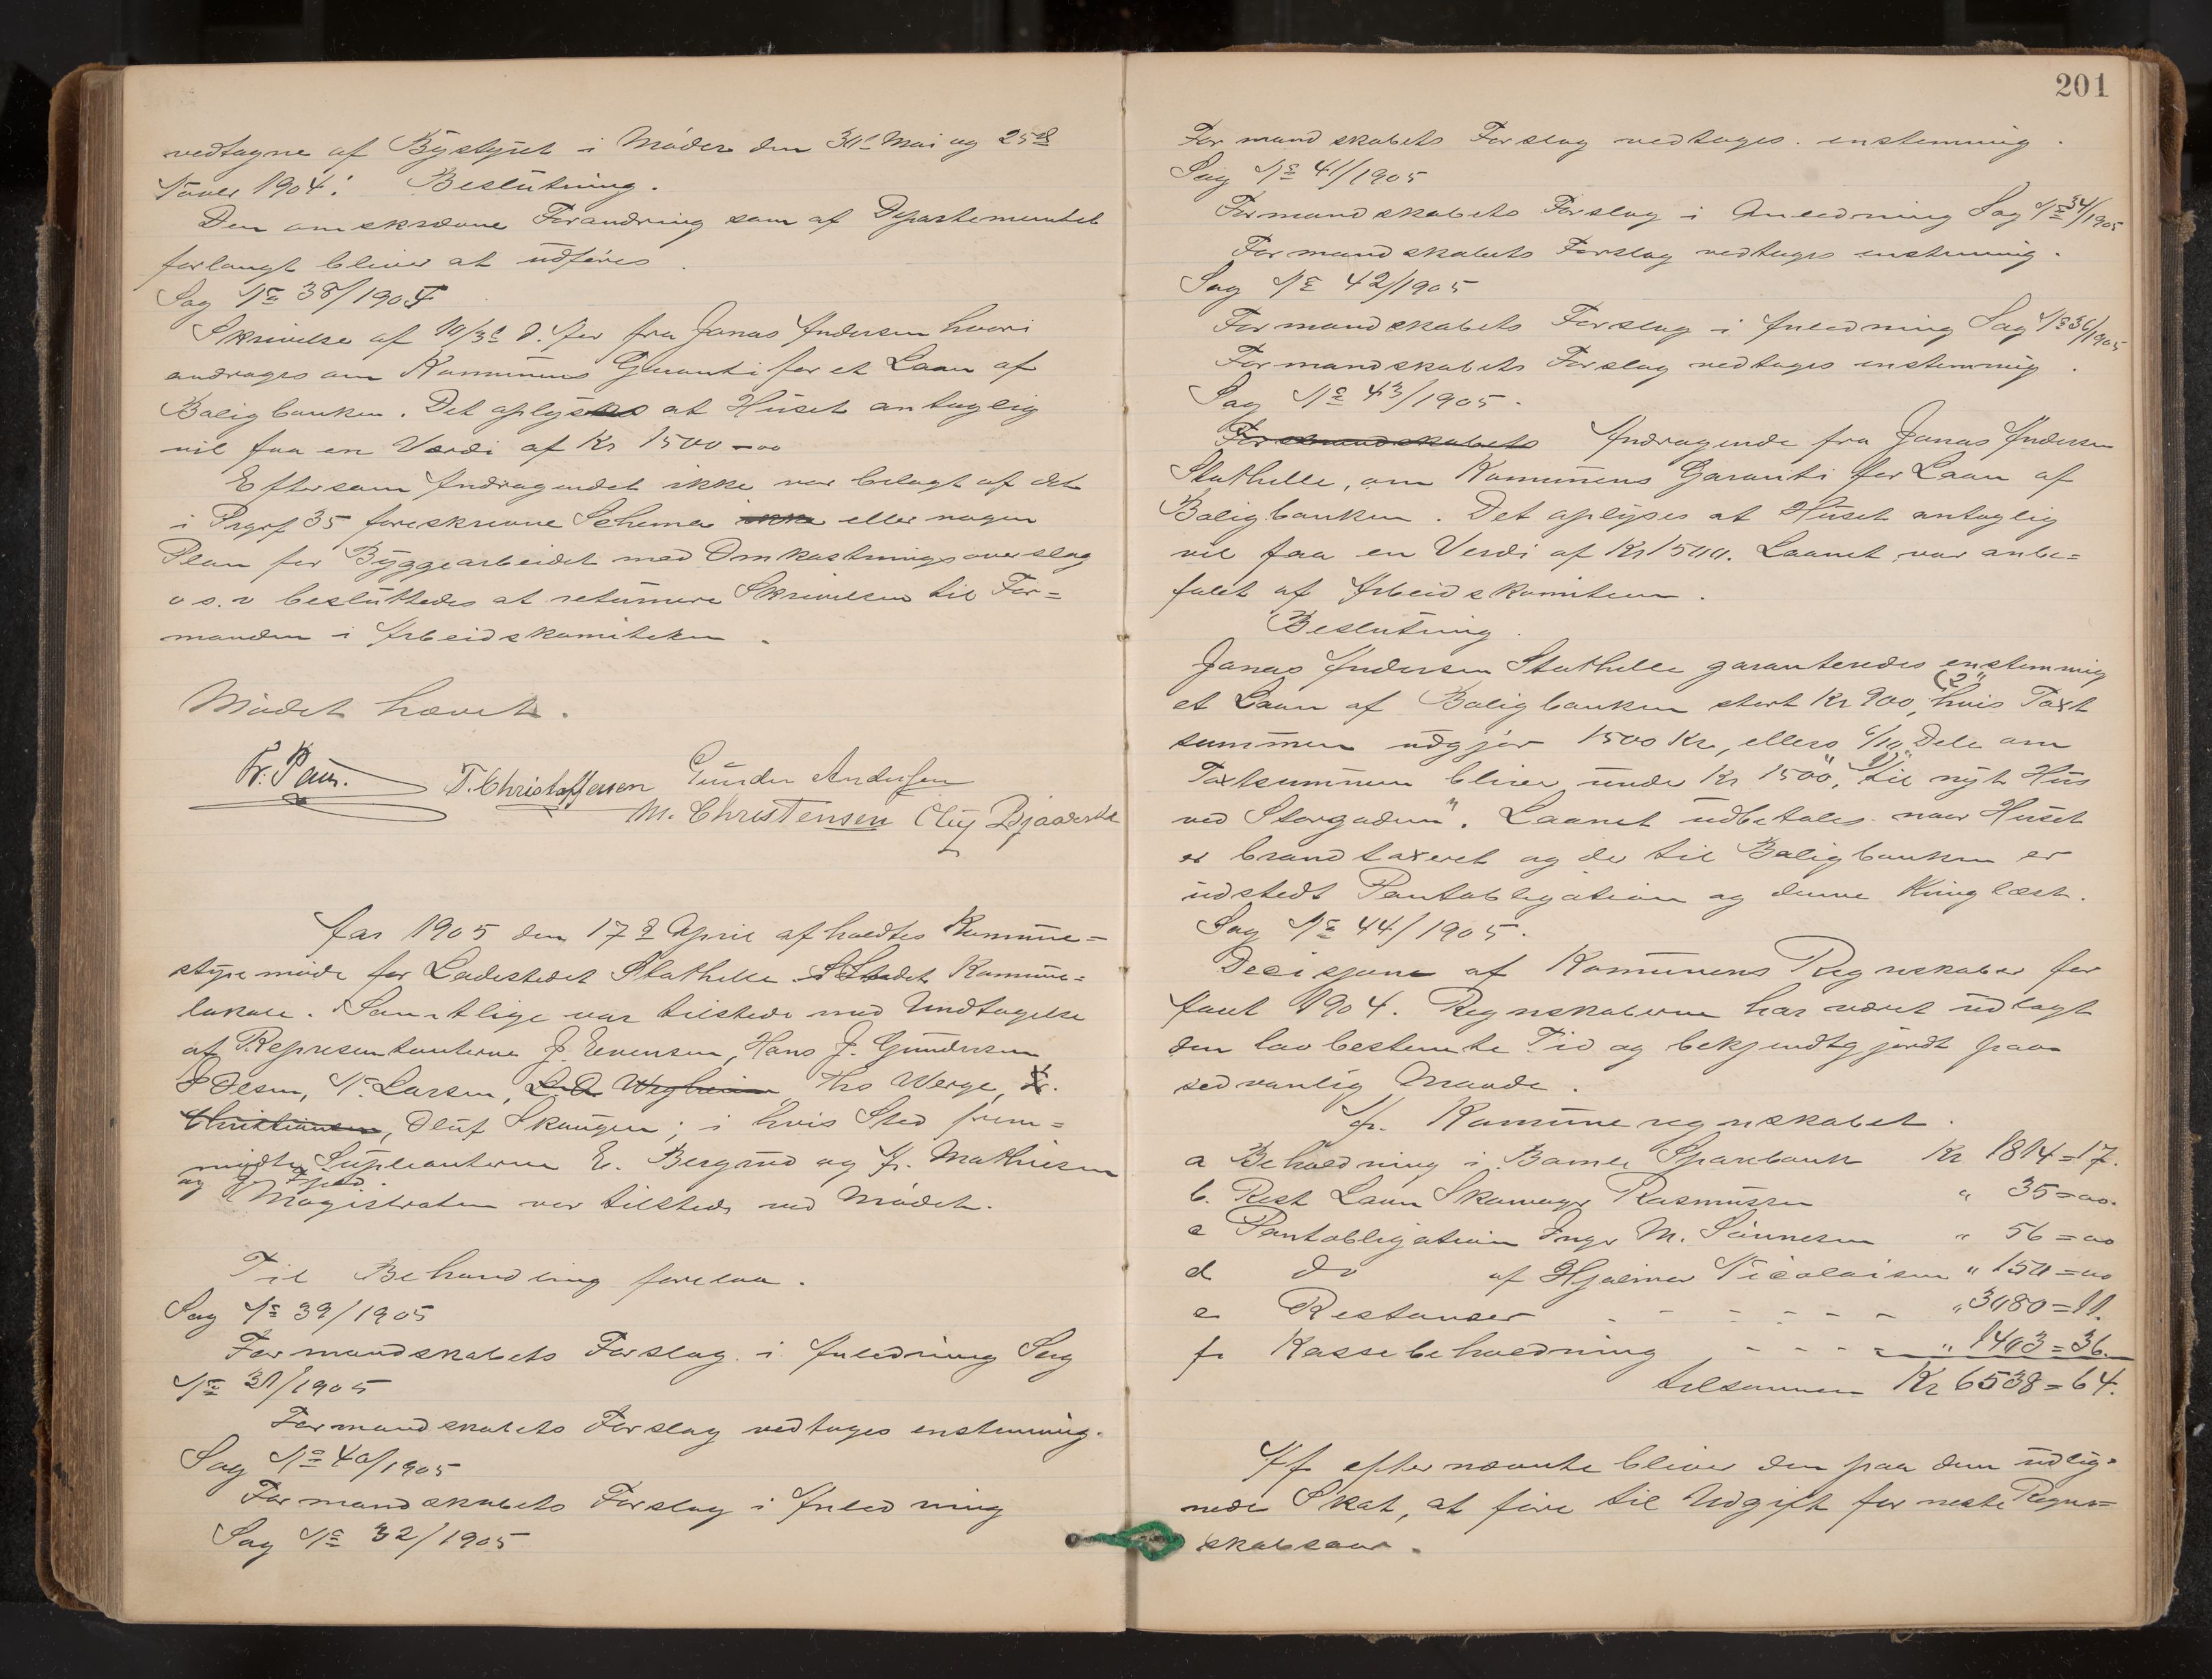 vedtagne af Bystyret i Møder den 30te Mai og 25de
Novbr 1904. Beslutning.
Den omskrevne Forandring som af Departementet
forlangt bliver at udføres.
Sag No 38/1905
Skrivelse af 10/3 d. Aar fra Jonas Andersen hvori
andrages om Kommunens Garanti for et Laan af
Boligbanken. Det oplyses at Huset antaglig
vil faa en Værdi af Kr 1500=00
Eftersom Andragendet ikke var belagt af det
i Prgrf 35 foreskrevne Schema ikke eller nogen
Plan for Byggearbeidet med Omkostningsoverslag
o s. v besluttedes at returnere Skrivelsen til For=
manden i Arbeidskomiteken.
Mødet hævet.
Fr. Paus. T. Christoffersen Gunder Andersen
M. Christensen Oluf Bjaaderstad
Aar 1905 den 17de April afholdtes Kommune=
styremøde for Ladestedet Stathelle i Stedets Kommune=
lokale. Samtlige var tilstede med Undtagelse
af Representanterne J. Evensen, Hans J. Gundersen
P Olsen, N. Larsen, Ths Werge,
Christiansen, Oluf Skaugen; i hvis Sted frem=
mødte Supleanterne E. Bergrud og Fr. Mathiesen
og
Magistraten var tilstede ved Mødet.
Til Behandling forelaa.
Sag No 39/1905
Formandskabets Forslag i Anledning Sag
No 31/1905
Formandskabets Forslag vedtages enstemmig.
Sag No 40/1905
Formandskabets Forslag i Anledning
Sag No 32/1905
201
Formandskabets Forslag vedtages. enstemmig.
Sag No 41/1905
Formandskabets Forslag i Anledning Sag No 34/1905
Formandskabets Forslag vedtages enstemmig.
Sag No 42/1905
Formandskabets Forslag i Anledning Sag No 36/1905
Formandskabets Forslag vedtages enstemmig.
Sag No 43/1905.
Formandskabets Andragende fra Jonas Andersen
Stathelle, om Kommunens Garanti for Laan af
Boligbanken. Det oplyses at Huset antaglig
vil faa en Verdi af Kr 1500. Laanet var anbe=
falet af Arbeidskomiteen.
Beslutning.
Jonas Andersen Stathelle garanteredes enstemmig
et Laan af Boligbanken stort Kr 900, hvis Taxt
summen udgjør 1500 Kr, ellers 6/10 Dele om
Taxtsummen bliver under Kr 1500, til nyt Hus
ved Storgaden". Laanet udbetales naar Huset
er brandtaxeret og der til Boligbanken er
udstedt Pantobligation og denne thinglæst.
Sag No 44/1905.
Decisjone af Kommunens Regnskaber for
Aaret 1904. Regnskaberne har været udlagt
den lovbestemte Tid og bekjendtgjordt paa
sedvanlig Maade.
A. Kommuneregnskabet.
a Beholdning i Bamle Sparebank Kr 1814=17.
b. Rest Laan Skomager Rasmussen " 35=00.
c Pantobligation Inger M. Sønnesen " 56=00
d do af Hjalmar Nicolaisen " 150=00
e Restanser - - - - - " 3080=11.
f. Kassebeholdning - - - - " 1403=36.
tilsammen Kr 6538=64.
Af efternævnte bliver den paa dem udlig=
nede Skat, at føre til Udgift for neste Regn=
skabsaar.